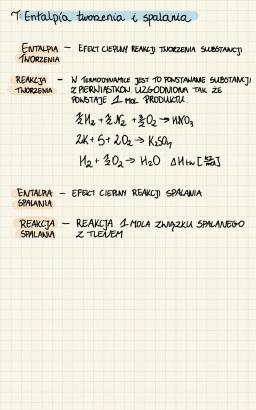 T: Entalpia tworzenia i spalania
ENTALPIA TWORZENIA — EFEKT CIEPLNY REAKCJI TWORZENIA SUBSTANCJI
REAKCJA TWORZENIA — W TERMODYNAMICE JEST TO POWSTAWANIE SUBSTANCJI
Z PIERWIASTKÓW. UZGODNIONA TAK ŻE
POWSTAJE 1 MOL PRODUKTU.
½H₂ + ½N₂ + 3/2O₂ → HNO₃
2K + S + 2O₂ → K₂SO₄
H₂ + ½O₂ → H₂O ΔHtw [kJ/mol]
ENTALPIA SPALANIA — EFEKT CIEPLNY REAKCJI SPALANIA
REAKCJA SPALANIA — REAKCJA 1 MOLA ZWIĄZKU SPALANEGO
Z TLENEM